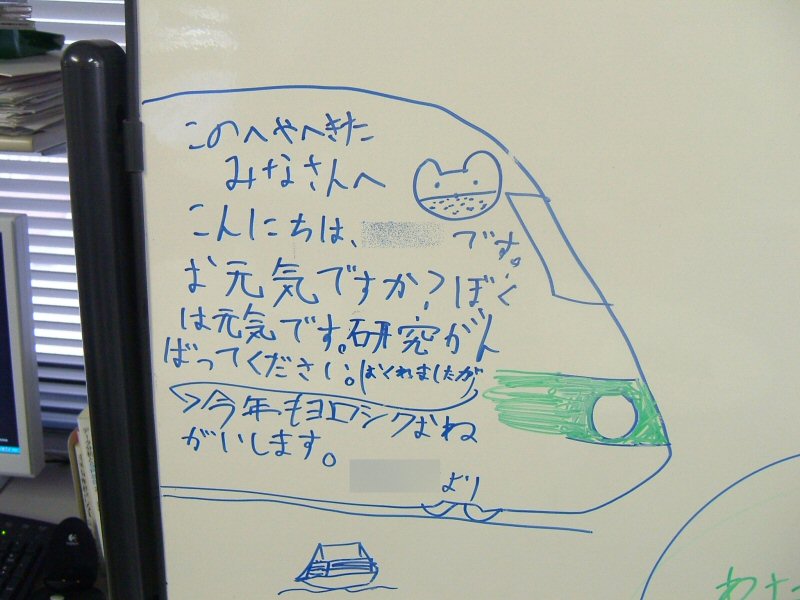 このへやへきた
みなさんへ
こんにちは、です。
お元気ですか?ぼく
は元気です。研究がん
ばってください。(おくれましたが
今年もヨロシクおね
がいします。
より
わた